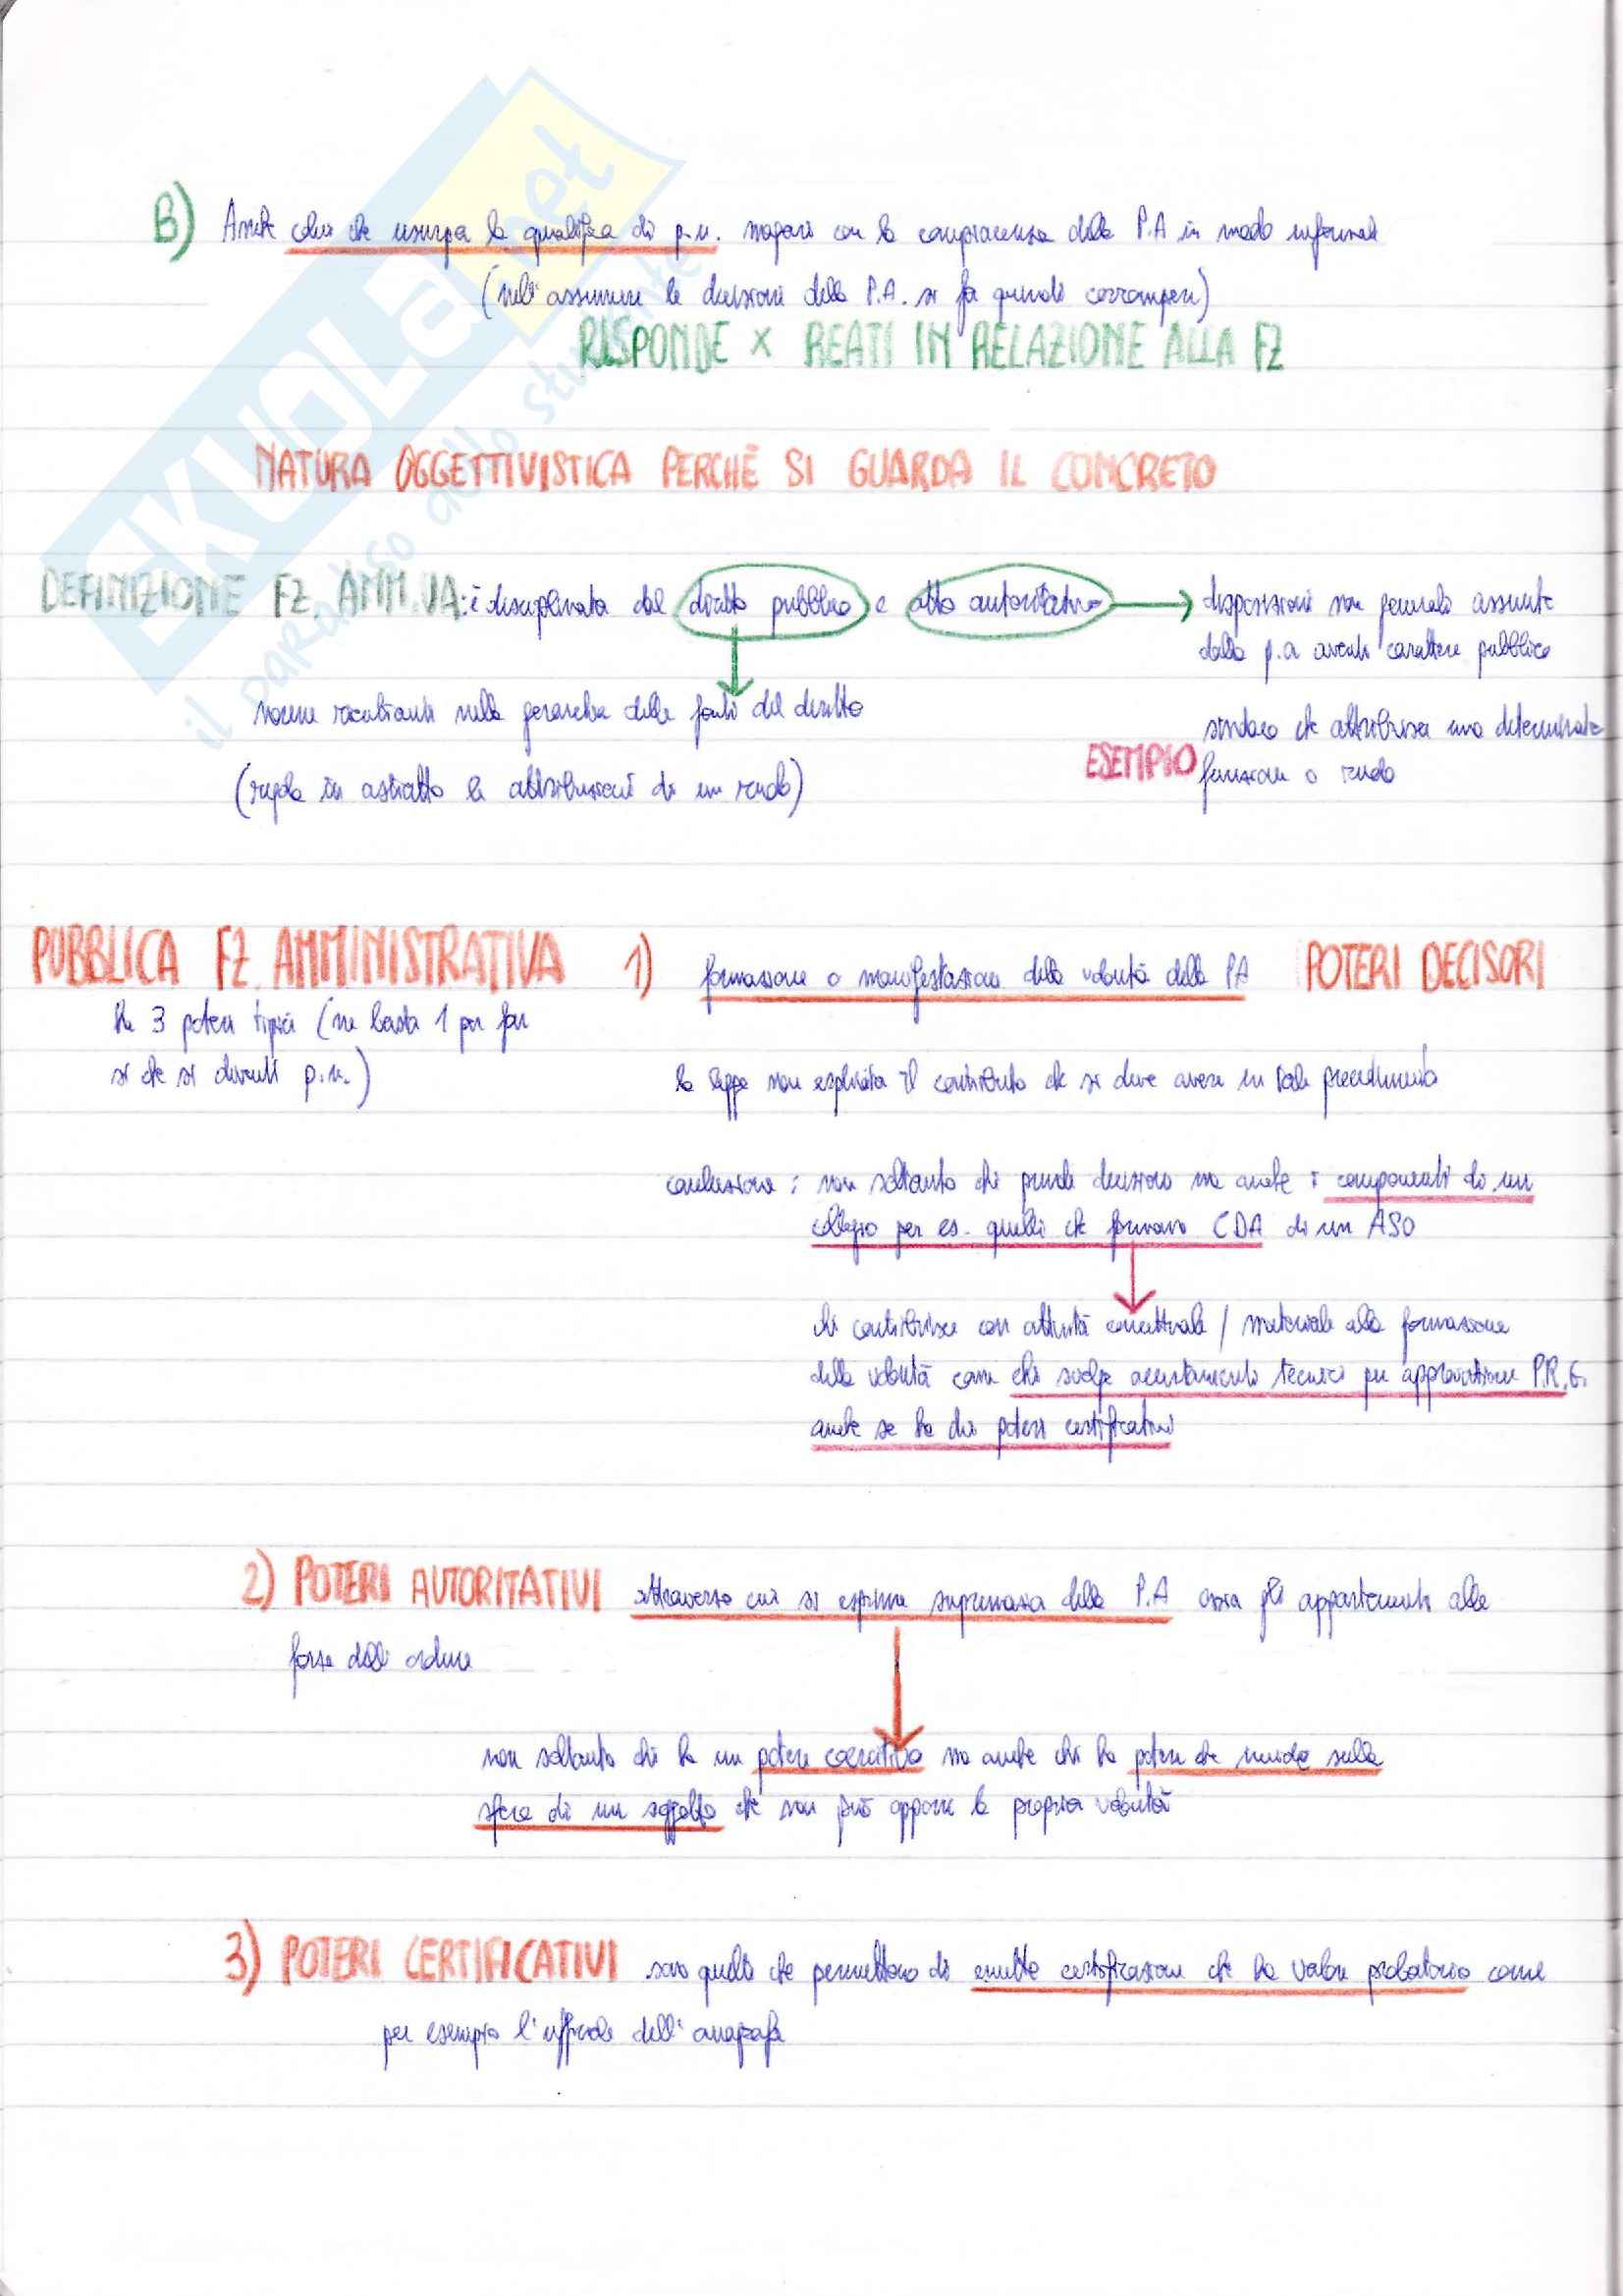 SKUOLA.net
il paradiso dello studente
B) Anche colui che usurpa la qualifica di p.u. magari con la compiacenza della P.A in modo informale
(nell'assumere le decisioni della P.A. si fa quindi corrompere)
RISPONDE X REATI IN RELAZIONE ALLA FZ
NATURA OGGETTIVISTICA PERCHÈ SI GUARDA IL CONCRETO
DEFINIZIONE FZ. AMM.VA: è disciplinata dal diritto pubblico e atto autoritativo → disposizioni non generali assunte
dalla p.a aventi carattere pubblico
norme rientranti nella gerarchia delle fonti del diritto
(regola in astratto le attribuzioni di un ruolo)
ESEMPIO sindaco che attribuisce una determinata
funzione o ruolo
PUBBLICA FZ. AMMINISTRATIVA 1) formazione o manifestazione della volontà della PA POTERI DECISORI
ha 3 poteri tipici (ne basta 1 per far
sì che si diventi p.u.)
la legge non esplicita il contributo che si deve avere in tale procedimento
conclusione: non soltanto chi prende decisioni ma anche i componenti di un
collegio per es. quelli che formano CDA di un ASO
chi contribuisce con attività concettuale / materiale alla formazione
della volontà come chi svolge accertamenti tecnici per approvazione P.R.G.
anche se ha dei poteri certificativi
2) POTERI AUTORITATIVI attraverso cui si esprime supremazia della P.A ossia gli appartenenti alle
forze dell'ordine
non soltanto chi ha un potere coercitivo ma anche chi ha potere che incide sulla
sfera di un soggetto che non può opporre la propria volontà
3) POTERI CERTIFICATIVI sono quelli che permettono di emettere certificazioni che ha valore probatorio come
per esempio l'ufficiale dell'anagrafe